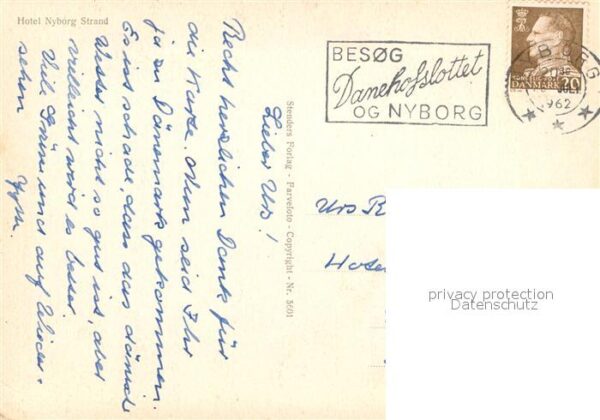 Hotel Nyborg Strand
BESØG
Danehofslottet
OG NYBORG
NYBORG
1962
DANMARK 20
Stenders Forlag - Farvefoto - Copyright - Nr. 5601
Lieber Urs!
Recht herzlichen Dank für
die Karte. Nun seid Ihr
ja in Dänemark gekommen.
Es ist schade, dass das dänische
Wetter nicht so gut ist, aber
vielleicht wird es besser.
Viele Grüsse und auf Wieder-
sehen
Urs
Hotel
privacy protection
Datenschutz